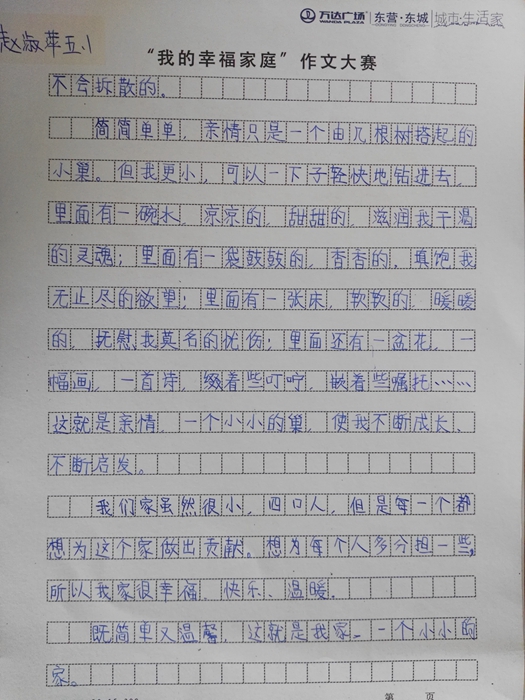 万达广场 WANDA PLAZA 东营·东城 城市·生活家
赵淑萍五.1
“我的幸福家庭”作文大赛
不会拆散的。
简简单单，亲情只是一个由几根树搭起的
小巢。但我更小，可以一下子轻快地钻进去，
里面有一碗水，凉凉的，甜甜的，滋润我干渴
的灵魂；里面有一袋鼓鼓的，香香的，填饱我
无止尽的欲望；里面有一张床，软软的，暖暖
的，抚慰我莫名的忧伤；里面还有一盆花，一
幅画，一首诗，缀着些叮咛，嵌着些嘱托……
这就是亲情，一个小小的巢，使我不断成长、
不断启发。
我们家虽然很小，四口人，但是每一个都
想为这个家做出贡献。想为每个人多分担一些，
所以我家很幸福、快乐、温暖。
既简单又温馨，这就是我家—一个小小的
家。
第 页